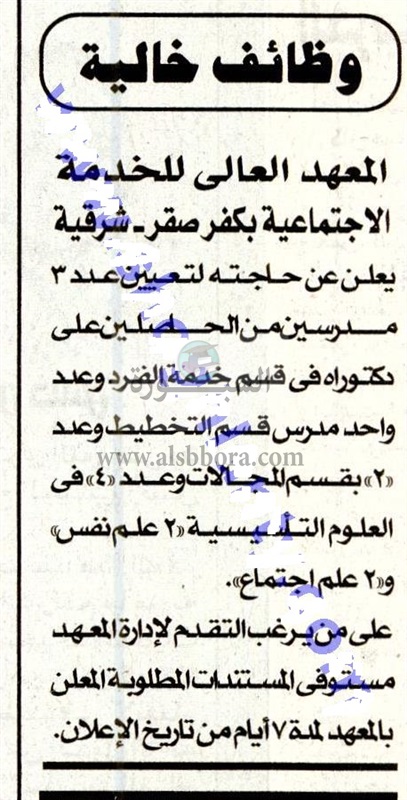 وظائف خالية
المعهد العالى للخدمة
الاجتماعية بكفر صقر ـ شرقية
يعلن عن حاجته لتعيين عدد ٣
مدرسين من الحاصلين على
دكتوراه فى قسم خدمة الفرد وعدد
واحد مدرس قسم التخطيط وعدد
«٢» بقسم المجالات وعدد «٤» فى
العلوم التأسيسية «٢ علم نفس»
و«٢ علم اجتماع».
على من يرغب التقدم لإدارة المعهد
مستوفى المستندات المطلوبة المعلن
بالمعهد لمدة ٧ أيام من تاريخ الإعلان.
السبورة
www.alsbbora.com